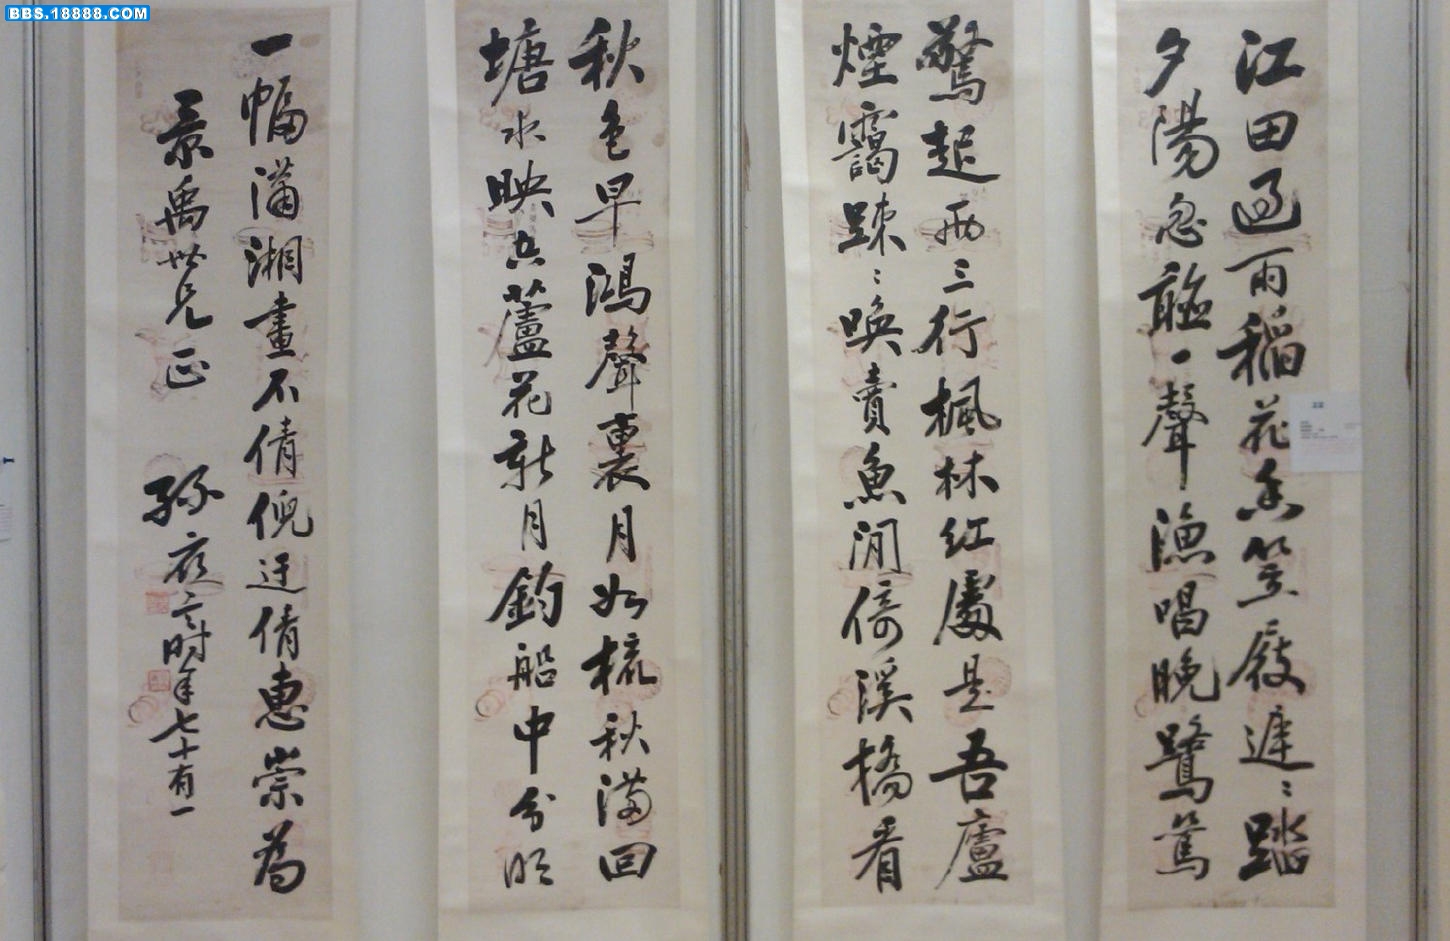 BBS.18888.COM
江田過雨稻花香笠屐遲〻踏
夕陽忽聽一聲漁唱晚鷺鷥
驚起兩三行楓林紅處是吾廬
煙靄踈〻喚賣魚閒倚溪橋看
秋色早鴻聲裏月如梳秋滿回
塘水映空蘆花新月釣船中分明
一幅瀟湘畫不倩倪迂倩惠崇為
景禹世兄正 孫衣言時年七十有一